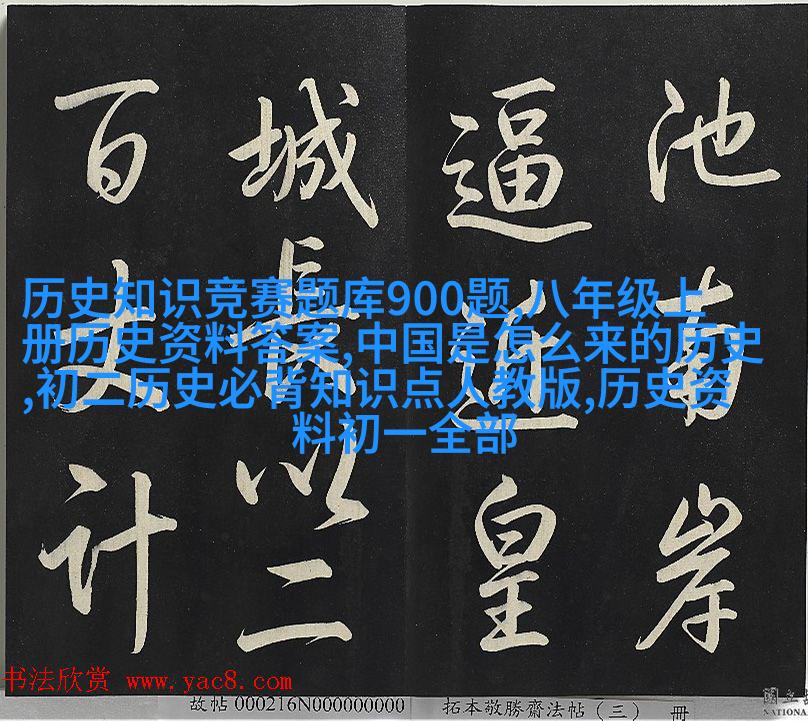 池南岸
逼近皇
城長以二
百丈計
历史知识竞赛题库900题,八年级上
册历史资料答案,中国是怎么来的历史
,初二历史必背知识点人教版,历史资
料初一全部
书法欣赏 www.yac8.com
故帖 000216N000000000 拓本敬勝齋法帖（三） 册
國立
NATIONA